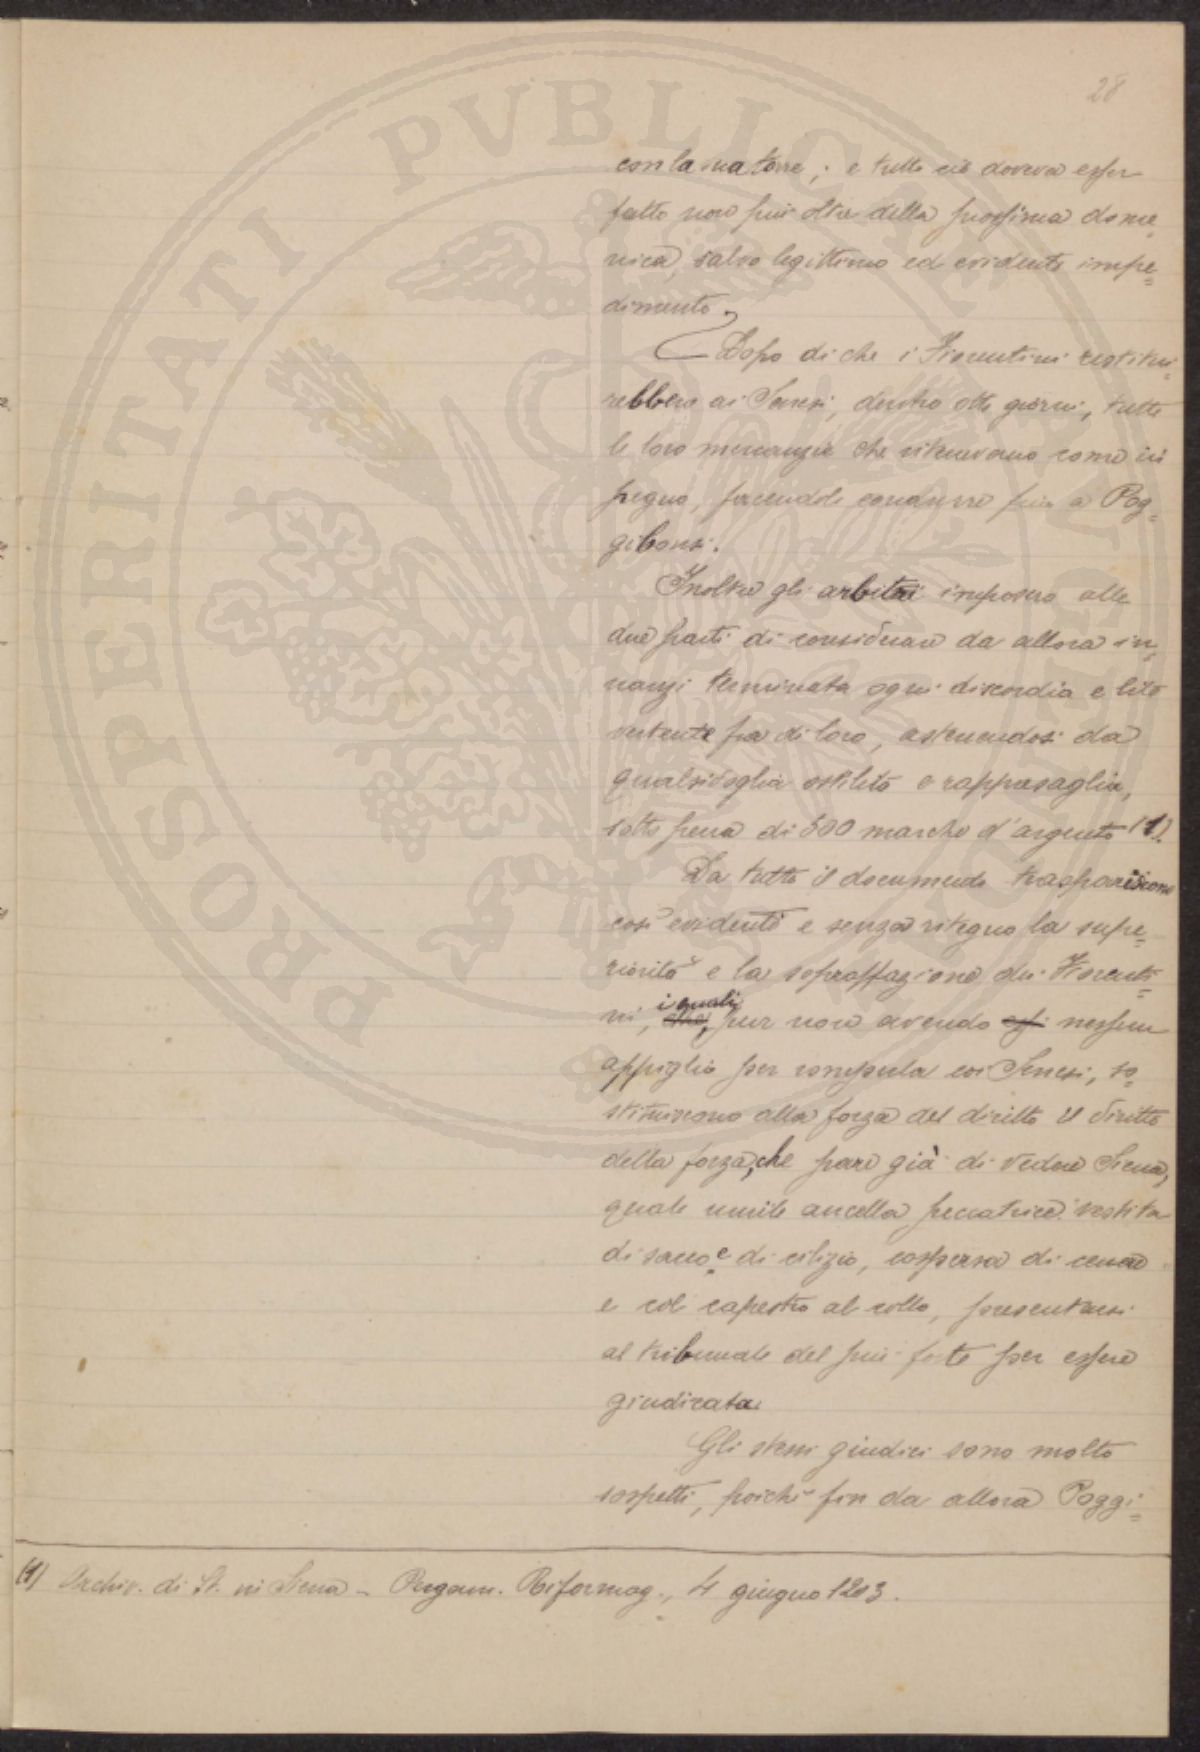 28
con la sua torre; e tutto ciò doveva esser
fatto non più oltre della prossima dome=
nica, salvo legittimo ed evidente impe=
dimento.
Dopo di che i Fiorentini restitui=
rebbero ai Senesi, dentro otto giorni, tutte
le loro mercanzie che ritenevano come in
pegno, facendole condurre fino a Pog=
gibonsi.
Inoltre gli arbitri imposero alle
due parti di considerare da allora in=
nanzi terminata ogni discordia e lite
vertente fra di loro, astenendosi da
qualsivoglia ostilità o rappresaglia,
sotto pena di 500 marche d'argento (1).
Da tutto il documento traspariscono
così evidenti e senza ritegno la supe=
riorità e la sopraffazione dei Fiorenti=
ni, che, i quali pur non avendo essi nessun
appiglio per romperla coi Senesi, so=
stituiscono alla forza del diritto il diritto
della forza, che pare già di vedere Siena,
quale umile ancella peccatrice vestita
di sacco e di cilizio, cospersa di cenere
e col capestro al collo, presentarsi
al tribunale del più forte per essere
giudicata.
Gli stessi giudici sono molto
sospetti, poichè fin da allora Poggi=
(1) Archiv. di St. in Siena - Pergam. Riformag., 4 giugno 1203.
PROSPERITATI PVBLICAE